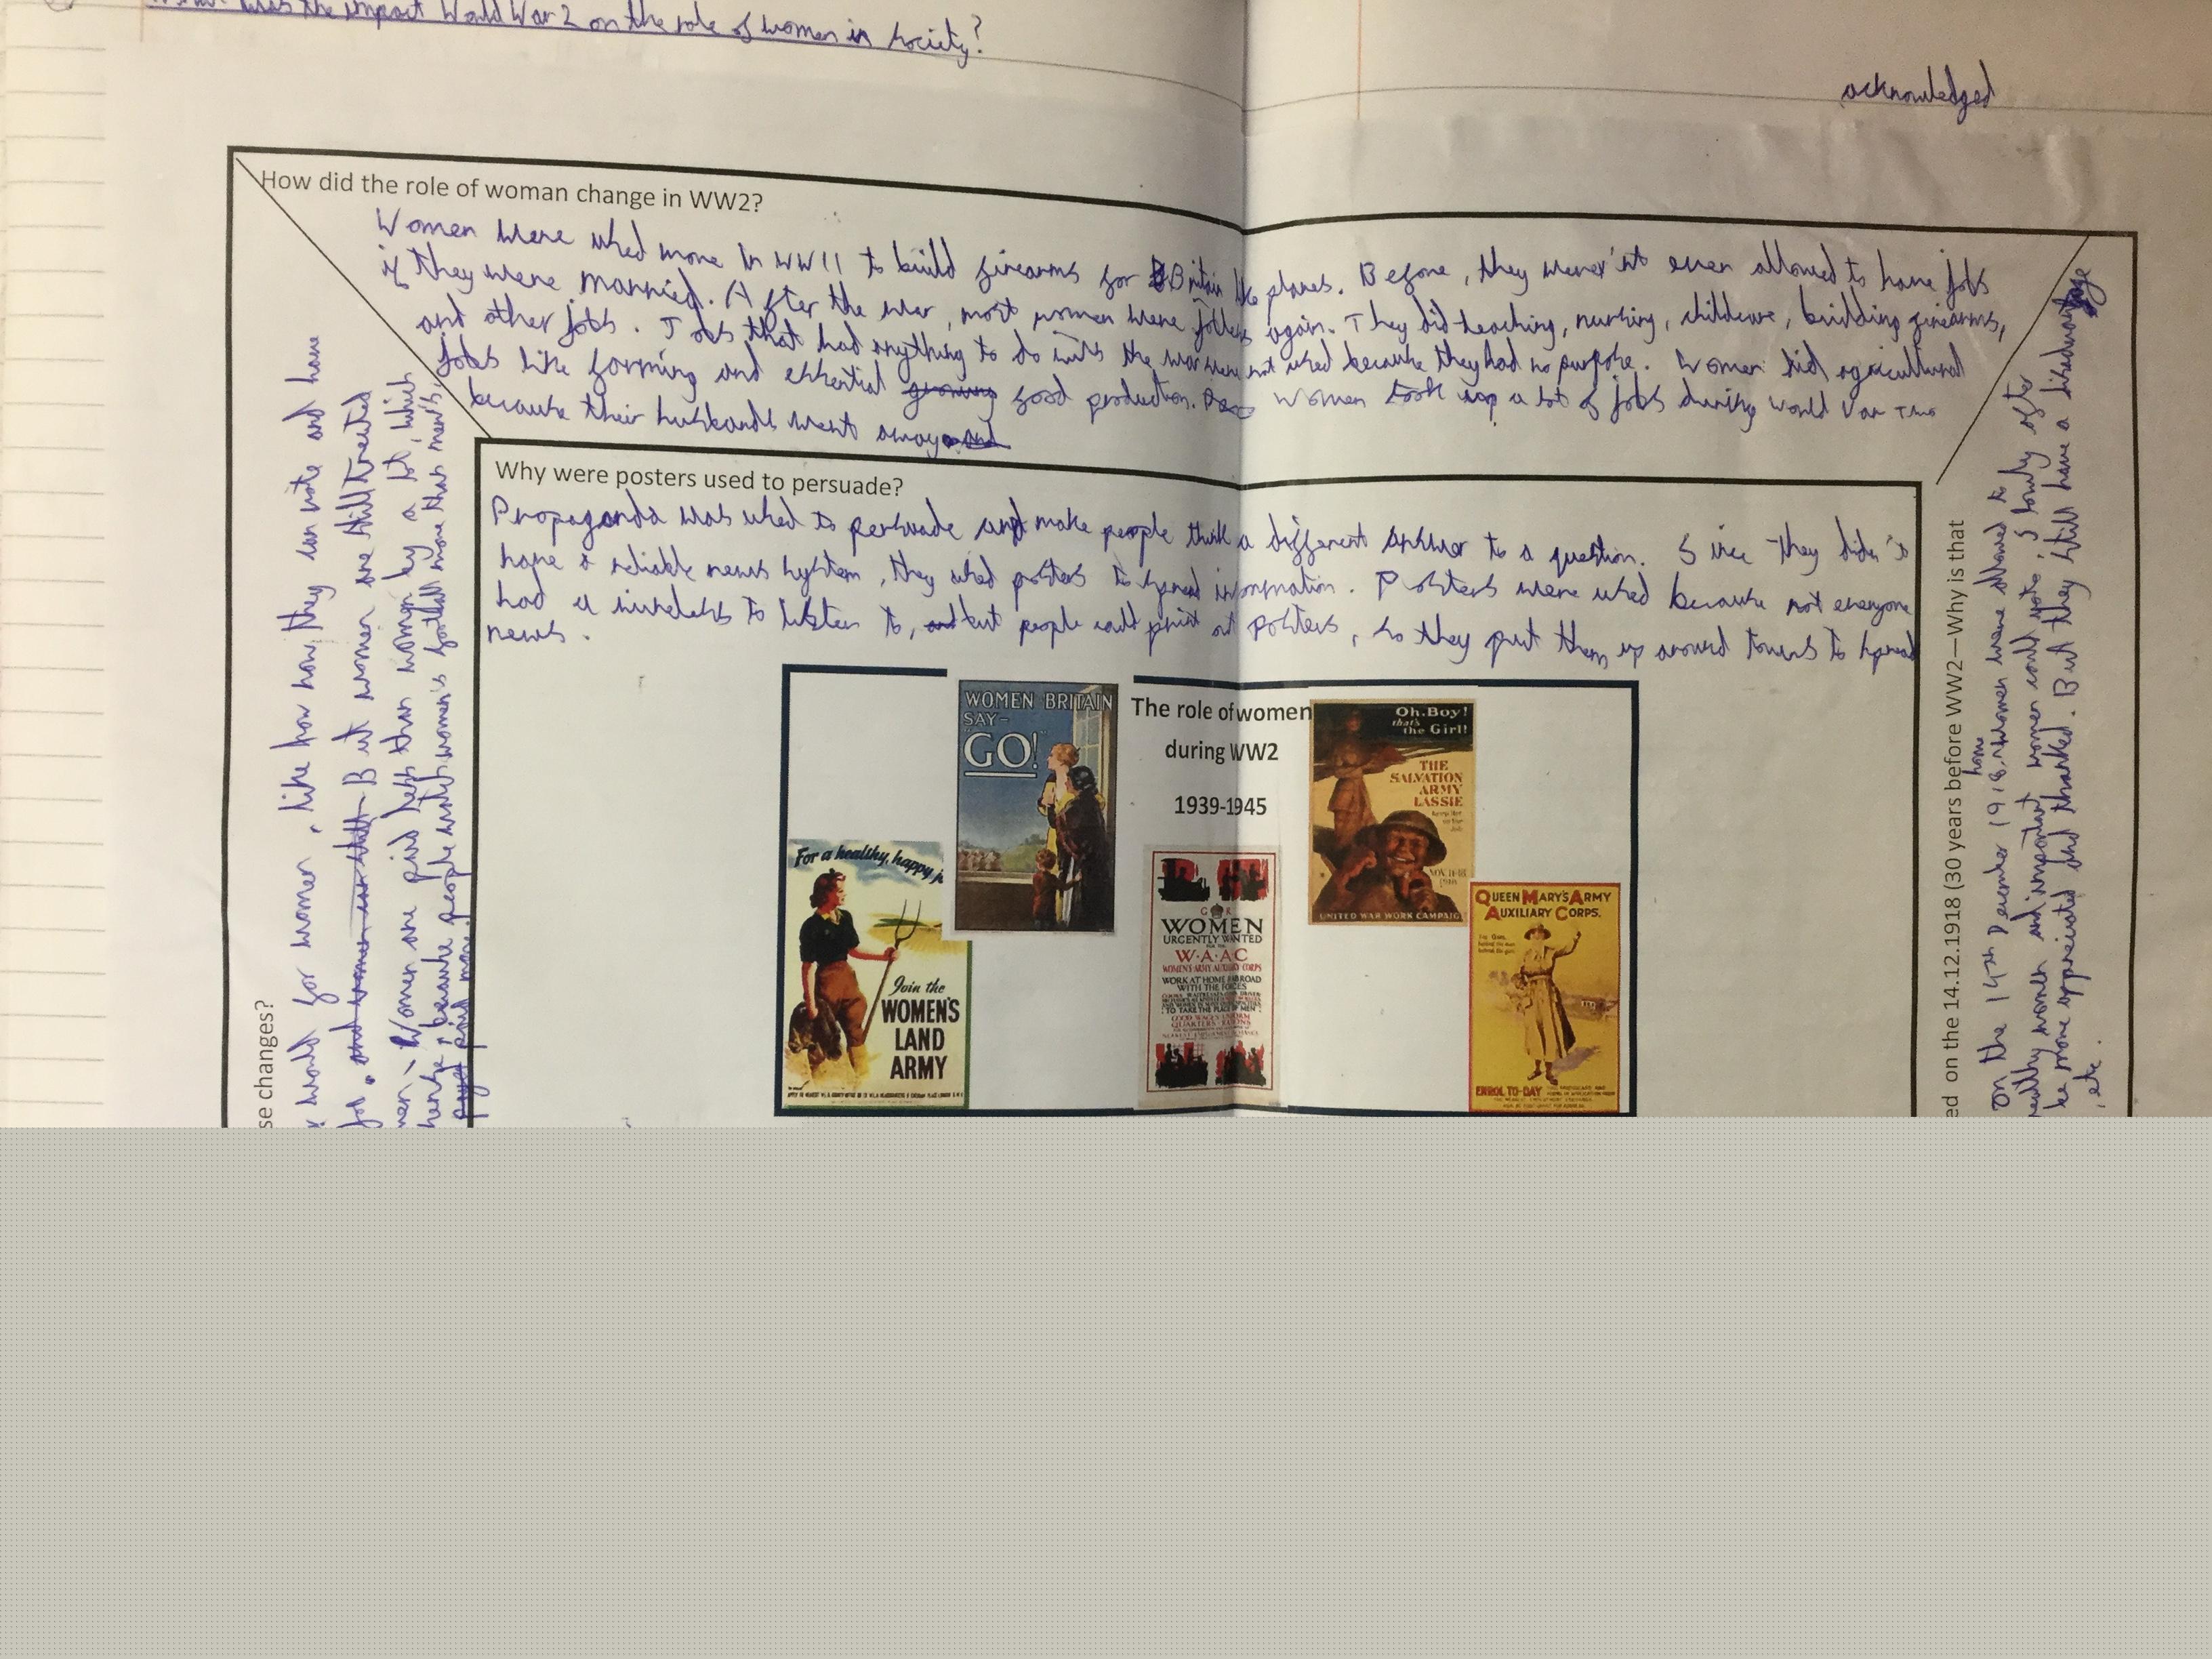 was the impact World War 2 on the role of women in society?
acknowledged
How did the role of woman change in WW2?
Women were used more in WWII to build firearms for Britain like planes. Before, they weren'nt even allowed to have jobs
if they were married. After the war, most women were jobless again. They did teaching, nursing, childcare, building firearms,
and other jobs. Jobs that had anything to do with the war were not used because they had no purpose. Women did agricultural
jobs like farming and essential growing food production. Women took up a lot of jobs during World War Two
because their husbands went away and
Why were posters used to persuade?
Propaganda was used to persuade and make people think a different answer to a question. Since they didn't
have a reliable news system, they used posters to spread information. Posters were used because not everyone
had a wireless to listen to, but people could print out posters, so they put them up around towns to spread
news.
WOMEN BRITAIN
SAY-
GO!
The role of women
during WW2
1939-1945
Oh, Boy!
that's
the Girl!
THE
SALVATION
ARMY
LASSIE
Keep Her
on the
Job
NOV. 11-18
UNITED WAR WORK CAMPAIG
For a healthy, happy j
Join the
WOMEN'S
LAND
ARMY
G R
WOMEN
URGENTLY WANTED
FOR THE
W·A·AC
WOMEN'S ARMY AUXILIARY CORPS
WORK AT HOME ABROAD
WITH THE FORCES
TO TAKE THE PLACE OF MEN
GOOD WAGES UNIFORM
QUARTERS RATIONS
QUEEN MARY'S ARMY
AUXILIARY CORPS.
ENROL TO-DAY
se changes?
would for women, like how now, they can vote and have
job. and women can still But women are still treated
Women are paid less than women by a lot, which
because people watch women's football more than men's,
payed paid more
ed on the 14.12.1918 (30 years before WW2—Why is that
On the 14th December 1918, some women were allowed to
wealthy women and important women could vote, if
be more appreciated and thanked. But they still have a disadvantage
, etc.